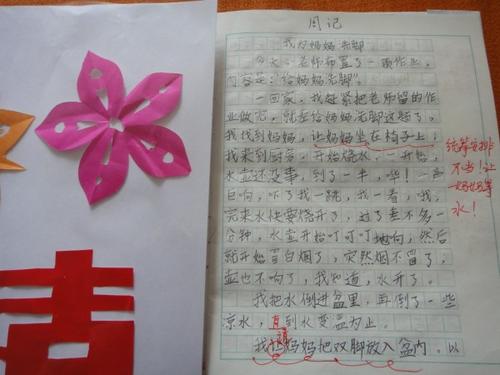 周记
我为妈妈洗脚
今天，老师布置了一项作业，
内容是：“给妈妈洗脚”。
一回家，我赶紧把老师留的作
业做完，就去给妈妈洗脚这题了。
我找到妈妈，让妈妈坐在椅子上，
我来到厨房，开始烧水，一开始，
水壶还没事，到了一半，哗！一声
巨响，吓了我一跳，我一看，哦，
完来水快要烧开了，过了差不多一
分钟，水壶开始叮叮叮地响，然后
就开始冒白烟了，突然烟不留了，
壶也不响了，我知道，水开了。
我把水倒进盆里，再倒了一些
凉水，直到水变温为止。
我让妈妈把双脚放入盆内，以
统筹安排
不当！让
妈妈等
水！